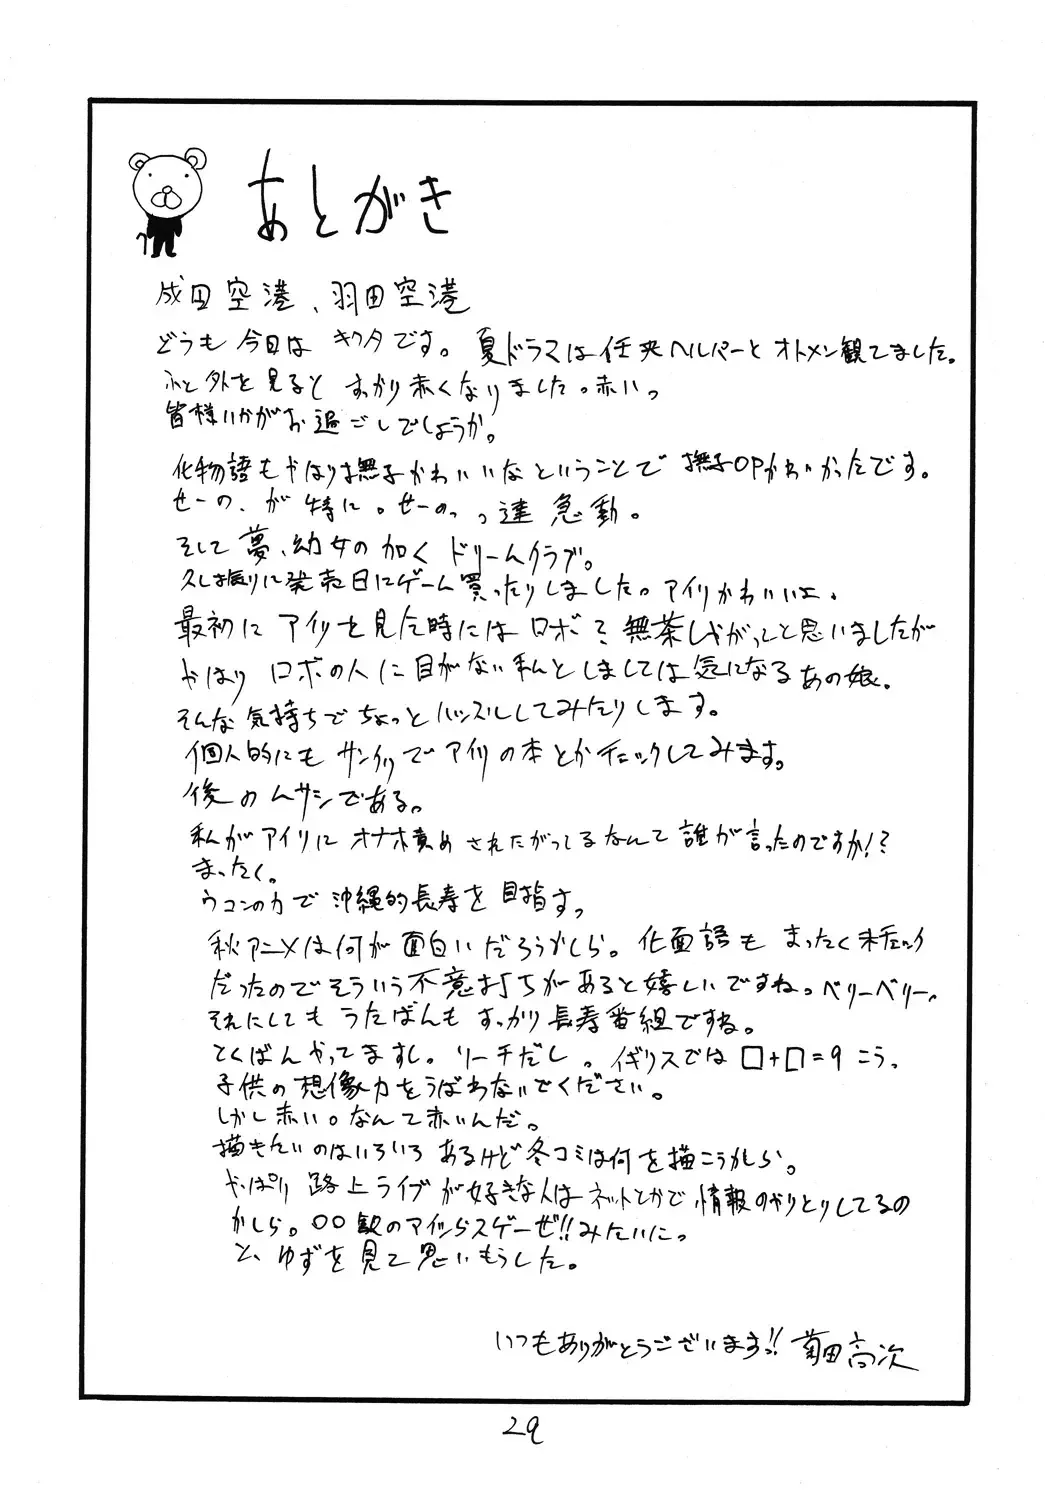 あとがき
成田空港、羽田空港
どうも今日は キクタです。夏ドラマは任侠ヘルパーとオトメン観てました。
ふと外を見ると すっかり赤くなりました。赤いっ
皆様いかがお過ごしでしょうか。
化物語もやはり撫子かわいいなということで 撫子OPかわいかったです。
せーの、が特に。せーのっっ達急動。
そして夢、幼女の加く ドリームクラブ。
久し振りに発売日にゲーム買ったりしました。アイリかわいいよ、
最初に アイリを見た時には ロボ？無茶しやがってと思いましたが
やはり ロボの人に目がない私としましては気になるあの娘。
そんな気持ちでちょっとハッスルしてみたりします。
個人的にも サンクリでアイリの本とかチェックしてみます。
後のムサシである。
私がアイリに オナホ責めされたがってるなんて誰が言ったのですか!?
まったく。
ウコンの力で 沖縄的長寿を目指すっ
秋アニメは何が面白いだろうかしら。化物語も まったく未チェック
だったのでそういう不意打ちがあると嬉しいですね。ベリーベリーっ
それにしてもうたばんもすっかり長寿番組ですね。
とくばんやってますし。リーチだし。イギリスでは□+□=9 こうっ
子供の想像力をうばわないでください。
しかし赤い。なんて赤いんだ。
描きたいのはいろいろ あるけど冬コミは何を描こうかしら。
やっぱり 路上ライブが好きな人は ネットとかで情報のやりとりしてるの
かしら。○○駅のアイツらスゲーぜ!!みたいにっ
と、ゆずを見て思いもうした。
いつもありがとうございますっ!! 菊田高次
29